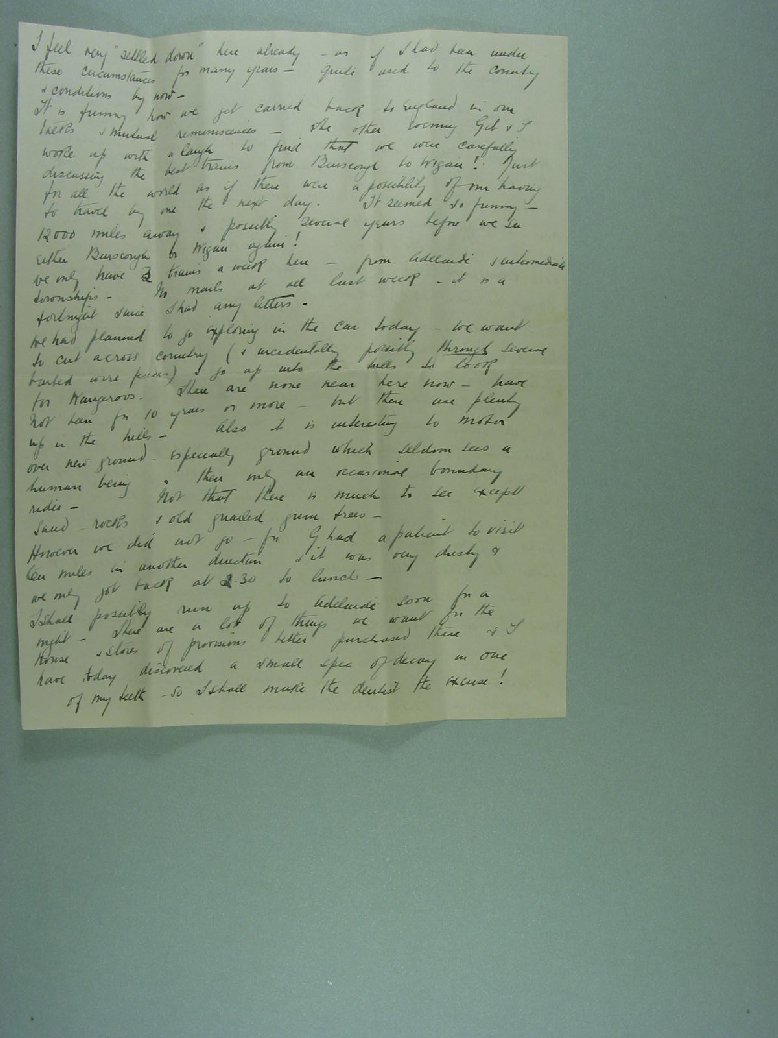 I feel very "settled down" here already - as if I had been under
these circumstances for many years - Quite used to the country
& conditions by now -
It is funny how we get carried back to England in our
talks & mutual reminiscences - The other evening Geb & I
woke up with a laugh to find that we were carefully
discussing the best trains from Burscough to Wigan! Just
for all the world as if there were a possibility of our having
to travel by one the next day. It seemed so funny -
12000 miles away & possibly several years before we see
either Burscough or Wigan again!
We only have 2 trains a week here - from Adelaide & intermediate
townships. No mails at all last week - it is a
fortnight since I had any letters -
We had planned to go exploring in the car today - we want
to cut across country (& incidentally possibly through several
barbed wire fences) & go up into the hills to look
for Kangaroos. There are none near here now - have
not been for 10 years or more - but there are plenty
up in the hills - Also it is interesting to motor
over new ground - especially ground which seldom sees a
human being & then only an occasional boundary
rider - Not that there is much to see except
sand - rocks & old gnarled gum trees -
However we did not go - for G had a patient to visit
ten miles in another direction & it was very dusty &
we only got back at 2 30 to lunch -
I shall possibly run up to Adelaide soon for a
night - There are a lot of things we want for the
House & stores of provisions better purchased there & I
have today discovered a small spec of decay in one
of my teeth - so I shall make the dentist the excuse!